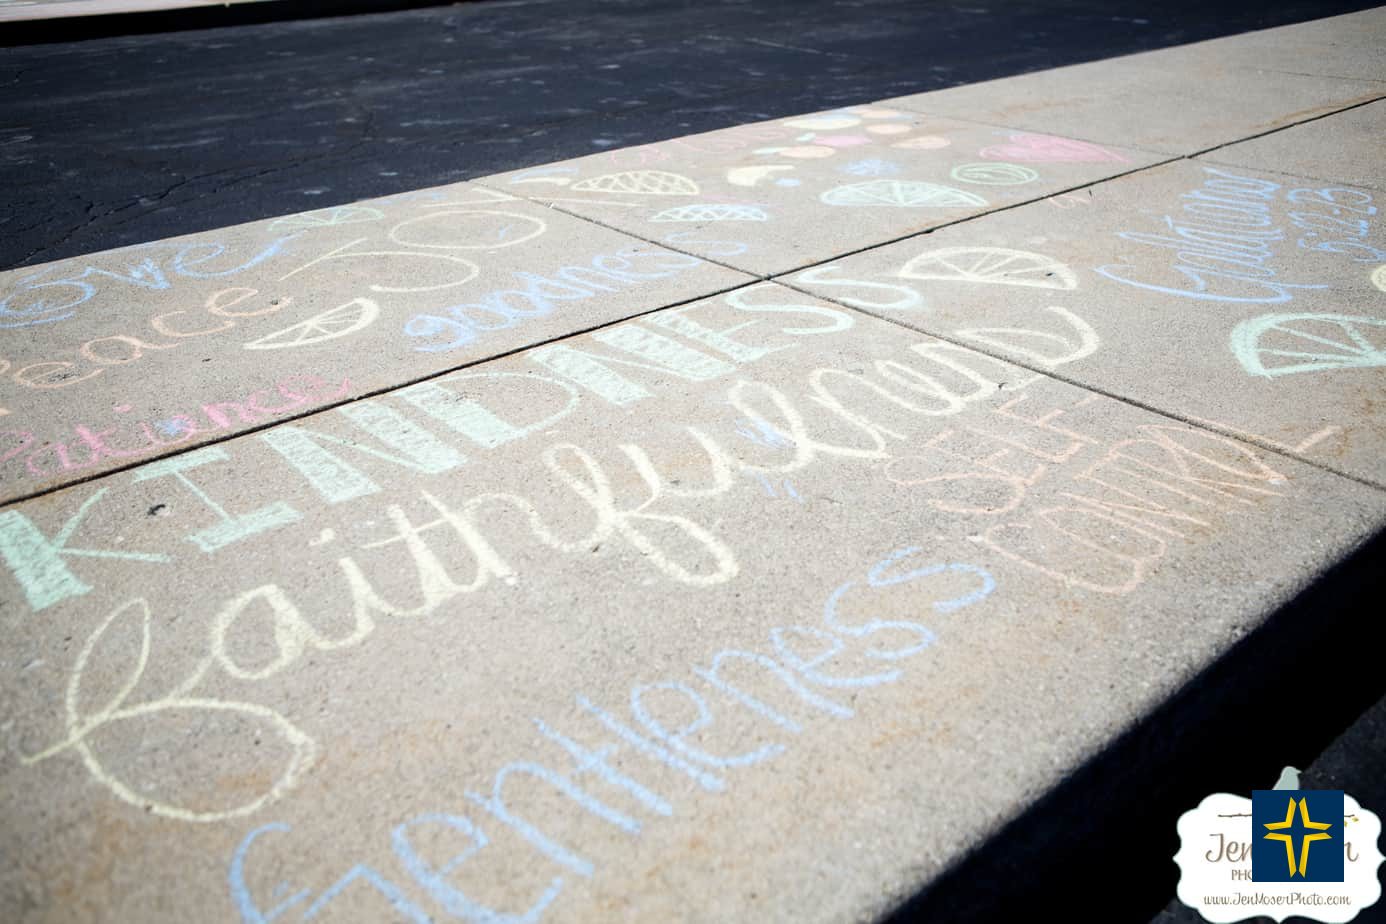 Love
Peace
JOY
Patience
goodness
KINDNESS
faithfulness
SELF
CONTROL
Gentleness
Galatians
5:22-23
www.JenMoserPhoto.com